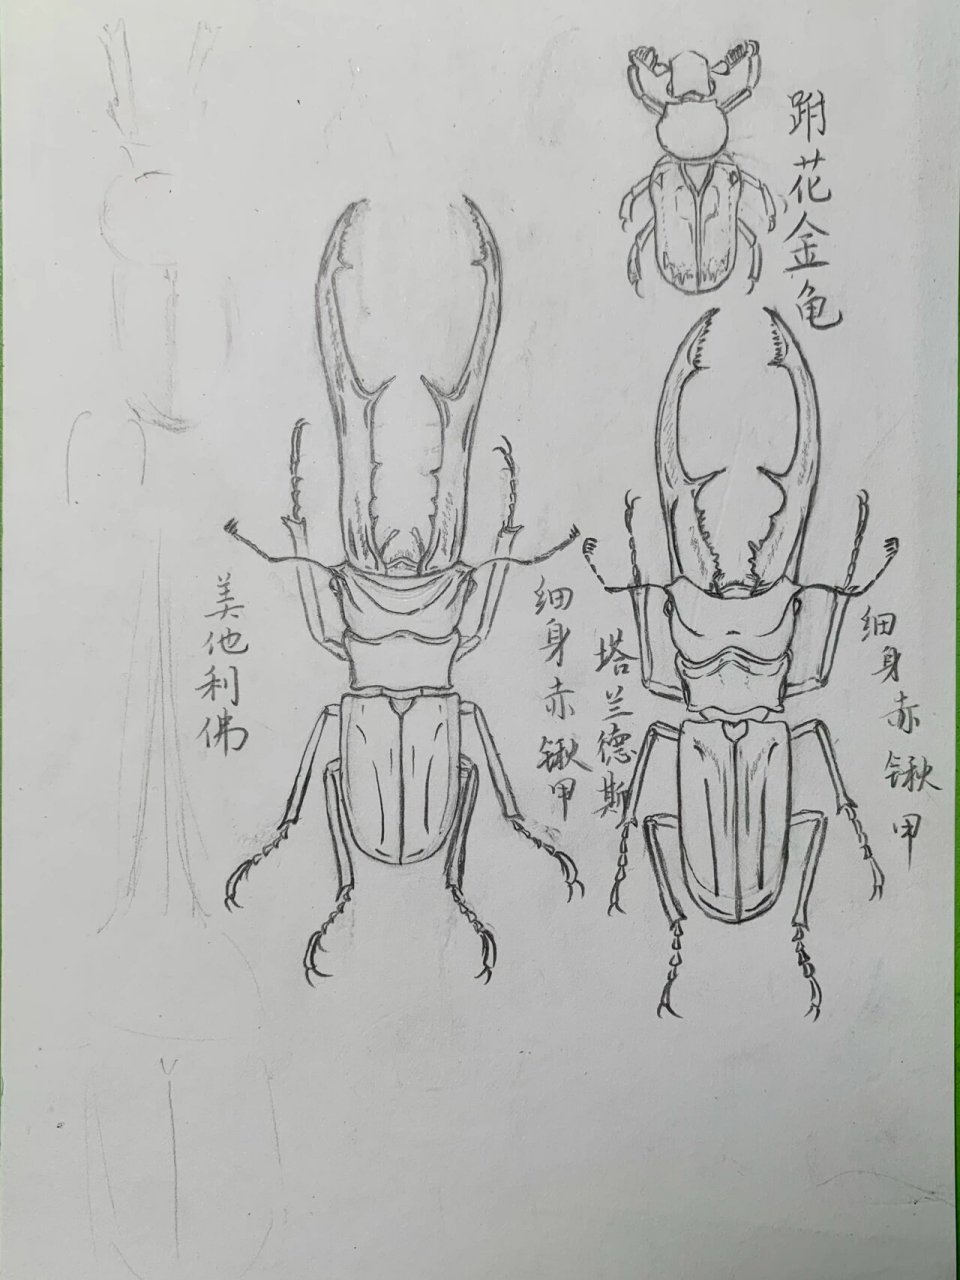 跗花金龟
美他利佛
细身赤锹甲
塔兰德斯
细身赤锹甲